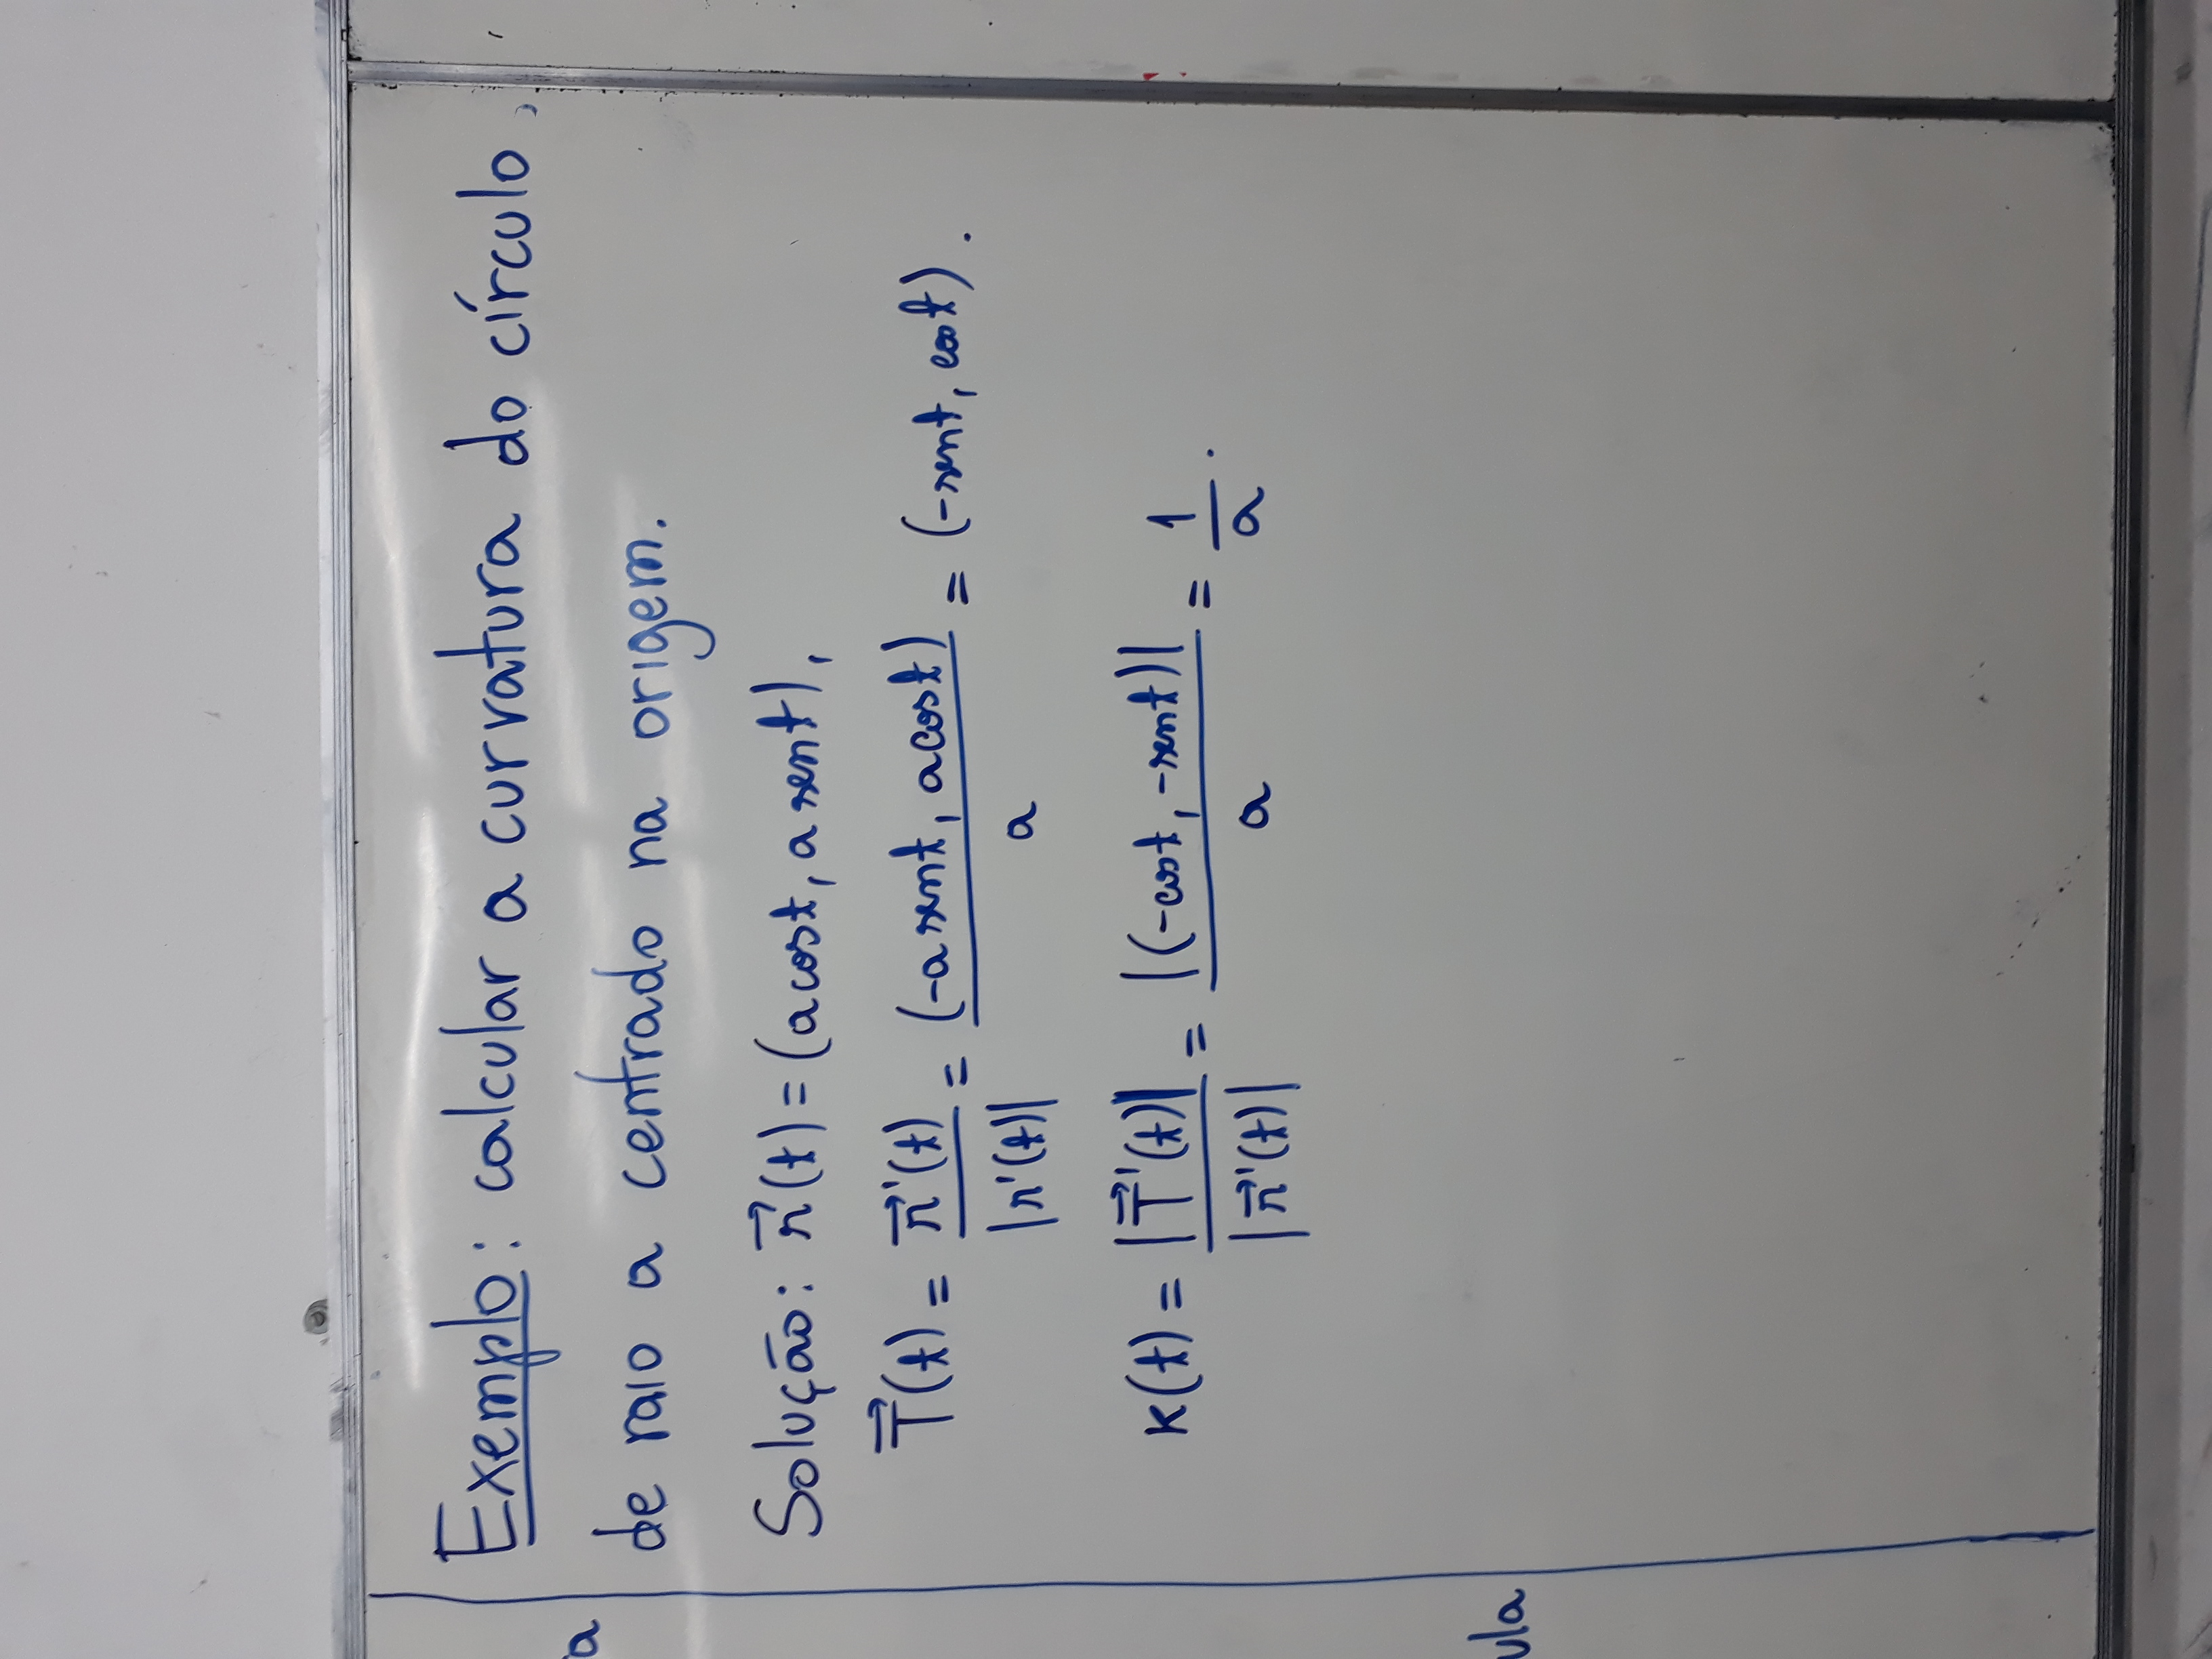 Exemplo: calcular a curvatura do círculo,
de raio a centrado na origem.
Solução: r⃗(t) = (a cost, a sent),
T⃗(t) = r⃗'(t) / |r'(t)| = (-a sent, a cost) / a = (-sent, cost).
κ(t) = |T⃗'(t)| / |r⃗'(t)| = |(-cost, -sent)| / a = 1 / a.
a
ula